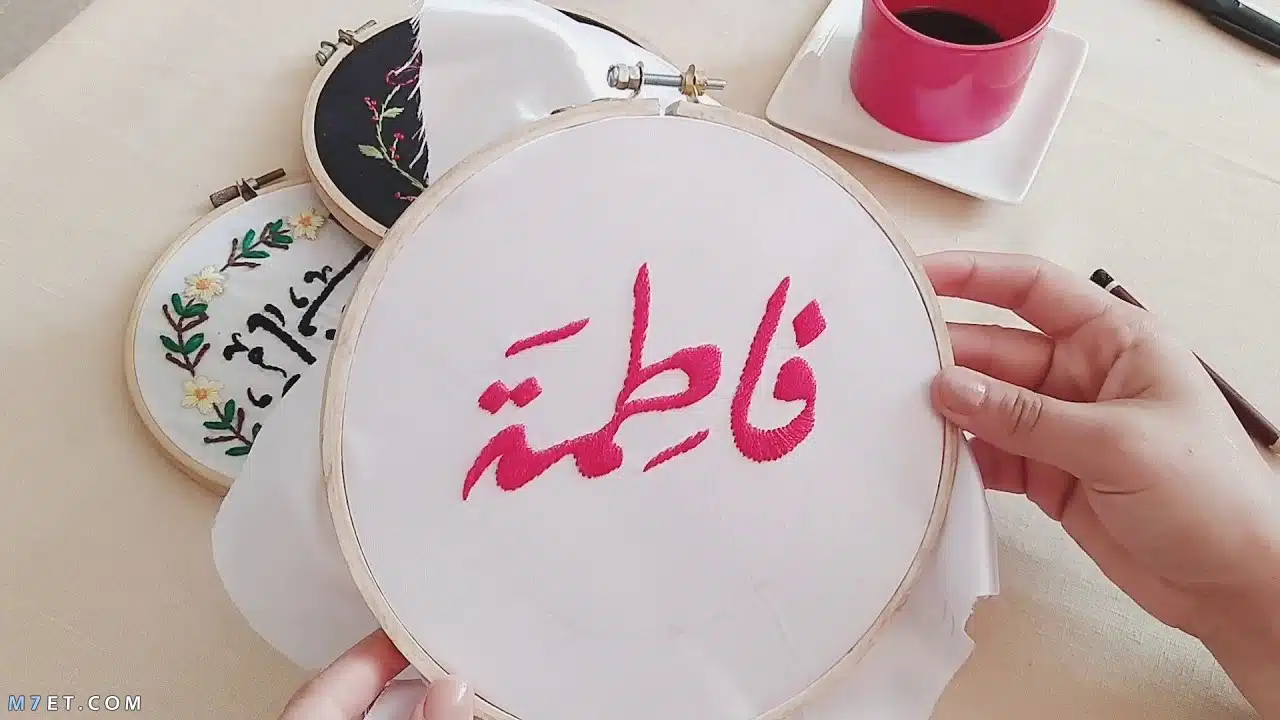 فاطِمَة
M7ET.COM